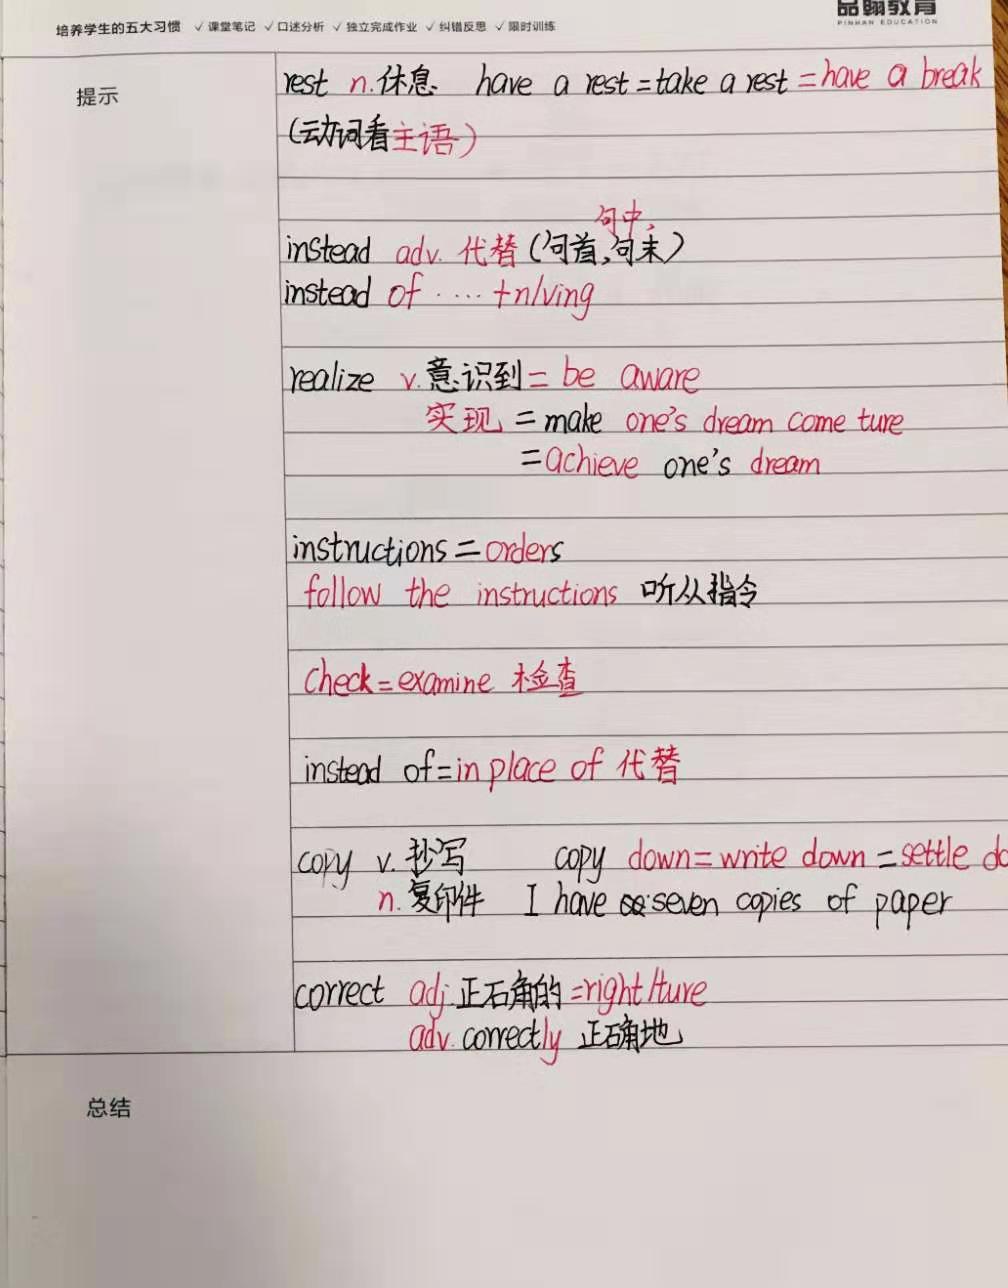 培养学生的五大习惯 ✓课堂笔记 ✓口述分析 ✓独立完成作业 ✓纠错反思 ✓限时训练
品翰教育
PINHAN EDUCATION
提示
rest n.休息 have a rest=take a rest=have a break
(动词看主语)
句中,
instead adv. 代替(句首,句末)
instead of ····+n/ving
realize v.意识到= be aware
实现 = make one's dream come ture
=achieve one's dream
instructions=orders
follow the instructions 听从指令
check=examine 检查
instead of=in place of 代替
copy v.抄写 copy down=write down=settle do
n.复印件 I have seven copies of paper
correct adj.正确的=right/ture
adv.correctly 正确地
总结